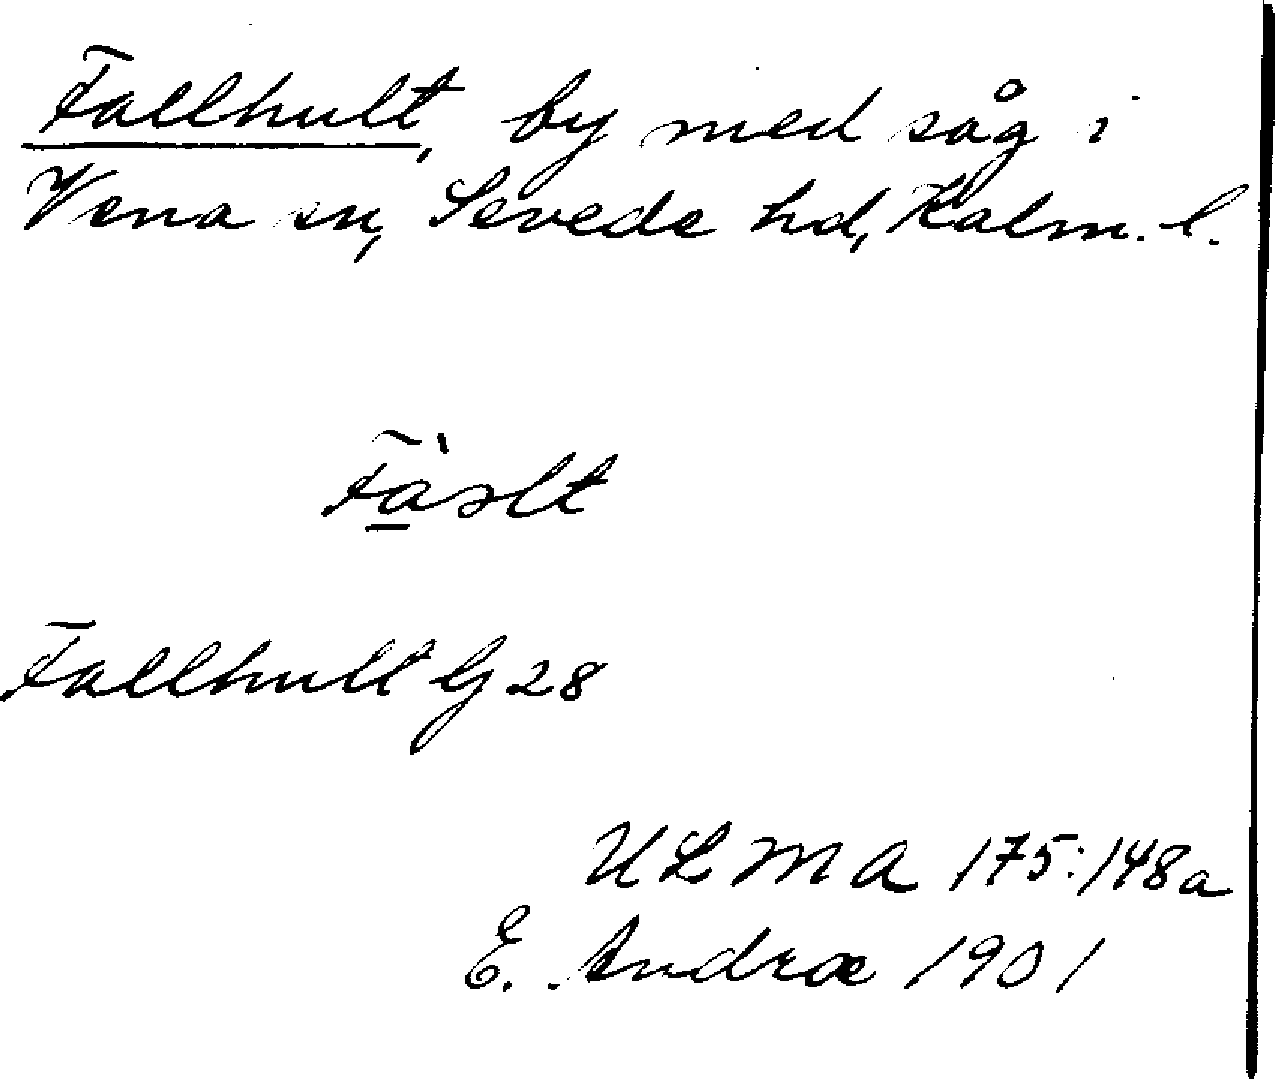 Fallhult, by med såg i
Vena sn, Sevede hd, Kalm. l.
Fàslt
Fallhult Gj 28
ULMA 175:148a
E. Andræ 1901